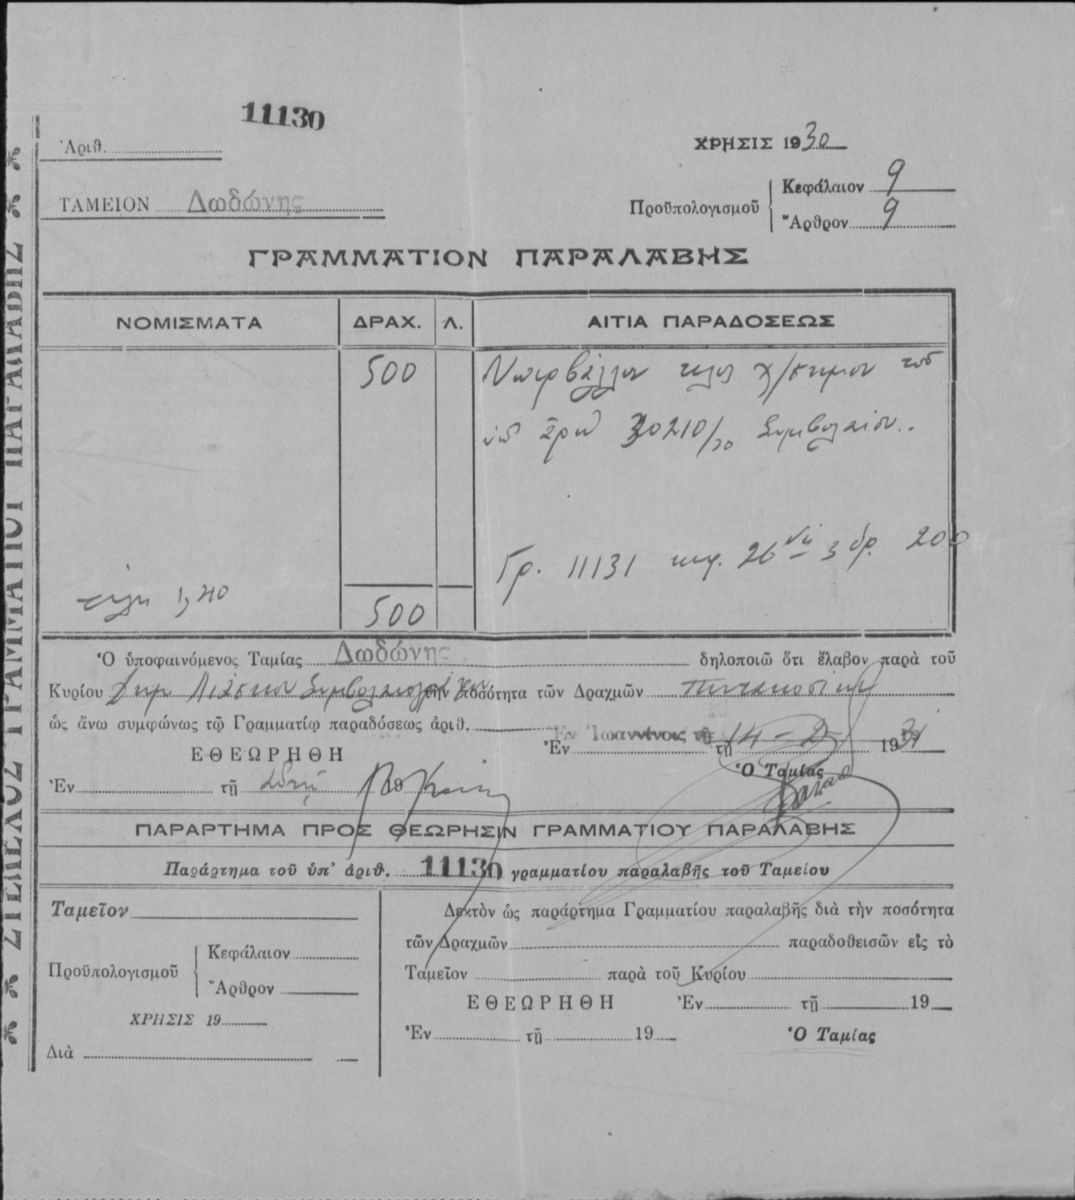 11130
Ἀριθ.
ΧΡΗΣΙΣ 1930
ΤΑΜΕΙΟΝ Δωδώνης
Προϋπολογισμοῦ
Κεφάλαιον 9
Ἄρθρον 9
ΓΡΑΜΜΑΤΙΟΝ ΠΑΡΑΛΑΒΗΣ
ΝΟΜΙΣΜΑΤΑ ΔΡΑΧ. Λ. ΑΙΤΙΑ ΠΑΡΑΔΟΣΕΩΣ
500
30210/30 Συμβολαίου..
Γρ. 11131 κεφ. 26 3 δρ. 200
τέλη 1,20
500
Ὁ ὑποφαινόμενος Ταμίας Δωδώνης δηλοποιῶ ὅτι ἔλαβον παρὰ τοῦ
Κυρίου τὴν ποσότητα τῶν Δραχμῶν πεντακοσίων
ὡς ἄνω συμφώνως τῷ Γραμματίῳ παραδόσεως ἀριθ.
Ἐν Ἰωαννίνοις τῇ
ΕΘΕΩΡΗΘΗ
Ἐν τῇ 14-2 1931
Ὁ Ταμίας
Ἐν τῇ 19
ΠΑΡΑΡΤΗΜΑ ΠΡΟΣ ΘΕΩΡΗΣΙΝ ΓΡΑΜΜΑΤΙΟΥ ΠΑΡΑΛΑΒΗΣ
Παράρτημα τοῦ ὑπ' ἀριθ. 11130 γραμματίου παραλαβῆς τοῦ Ταμείου
Ταμεῖον
Προϋπολογισμοῦ
Κεφάλαιον
Ἄρθρον
ΧΡΗΣΙΣ 19
Διὰ
Δεκτὸν ὡς παράρτημα Γραμματίου παραλαβῆς διὰ τὴν ποσότητα
τῶν Δραχμῶν παραδοθεισῶν εἰς τὸ
Ταμεῖον παρὰ τοῦ Κυρίου
ΕΘΕΩΡΗΘΗ Ἐν τῇ 19
Ἐν τῇ 19 Ὁ Ταμίας